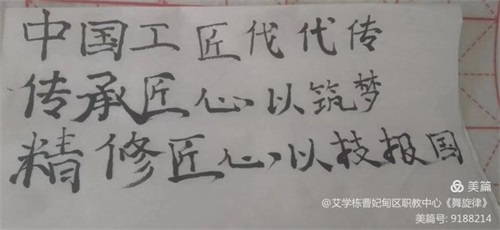 中国工匠代代传
传承匠心以筑梦
精修匠心以技报国
美篇
@艾学栋曹妃甸区职教中心《舞旋律》
美篇号: 9188214